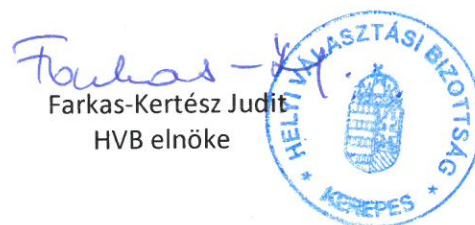 Farkas-K
Farkas-Kertész Judit
HVB elnöke
HELYI VÁLASZTÁSI BIZOTTSÁG
* KEREPES *